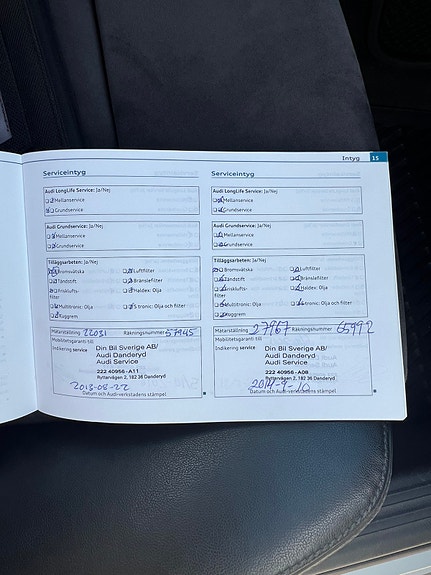 Intyg 15
Serviceintyg
Audi LongLife Service: Ja/Nej
Mellanservice
Grundservice
Audi Grundservice: Ja/Nej
Mellanservice
Grundservice
Tilläggsarbeten: Ja/Nej
Bromsvätska Luftfilter
Tändstift Bränslefilter
Friskluftsfilter Haldex: Olja
Multitronic: Olja S tronic: Olja och filter
Kuggrem
Mätarställning 22031 Räkningsnummer 57945
Mobilitetsgaranti till
Indikering service
Din Bil Sverige AB/
Audi Danderyd
Audi Service
222 40956 -A11
Ryttarvägen 2, 182 36 Danderyd
2013-08-22
Datum och Audi-verkstadens stämpel
Serviceintyg
Audi LongLife Service: Ja/Nej
Mellanservice
Grundservice
Audi Grundservice: Ja/Nej
Mellanservice
Grundservice
Tilläggsarbeten: Ja/Nej
Bromsvätska Luftfilter
Tändstift Bränslefilter
Friskluftsfilter Haldex: Olja
Multitronic: Olja S tronic: Olja och filter
Kuggrem
Mätarställning 27967 Räkningsnummer 65992
Mobilitetsgaranti till
Indikering service
Din Bil Sverige AB/
Audi Danderyd
Audi Service
222 40956 -A08
Ryttarvägen 2, 182 36 Danderyd
2014-9-10
Datum och Audi-verkstadens stämpel